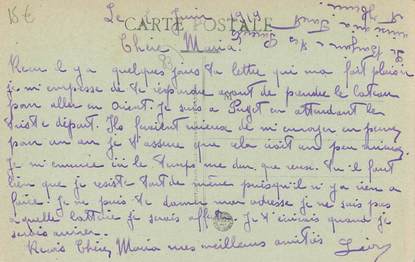 15 €
Le Juin 1919
CARTE POSTALE
Chère Maria!
Reçu il y a quelques jours ta lettre qui ma fort plaisir
je m'empresse de te répondre avant de prendre le bateau
pour aller en orient. Je suis a Puget en attendant le
triste départ. Ils feraient mieux de m'envoyer en perm
pour un an je t'assure que cela irait un peu mieux.
Je m'ennuie ici le temps me dur que veux tu il faut
bien que je reste tout de même puisqu'il n'y a rien a
faire. Je ne puis te donner mon adresse je ne sais pas
a quelle batterie je serais affecté. Je t'écrirais quand je
serais arrivé.
Reçois Chère Maria mes meilleurs amitiés Léon